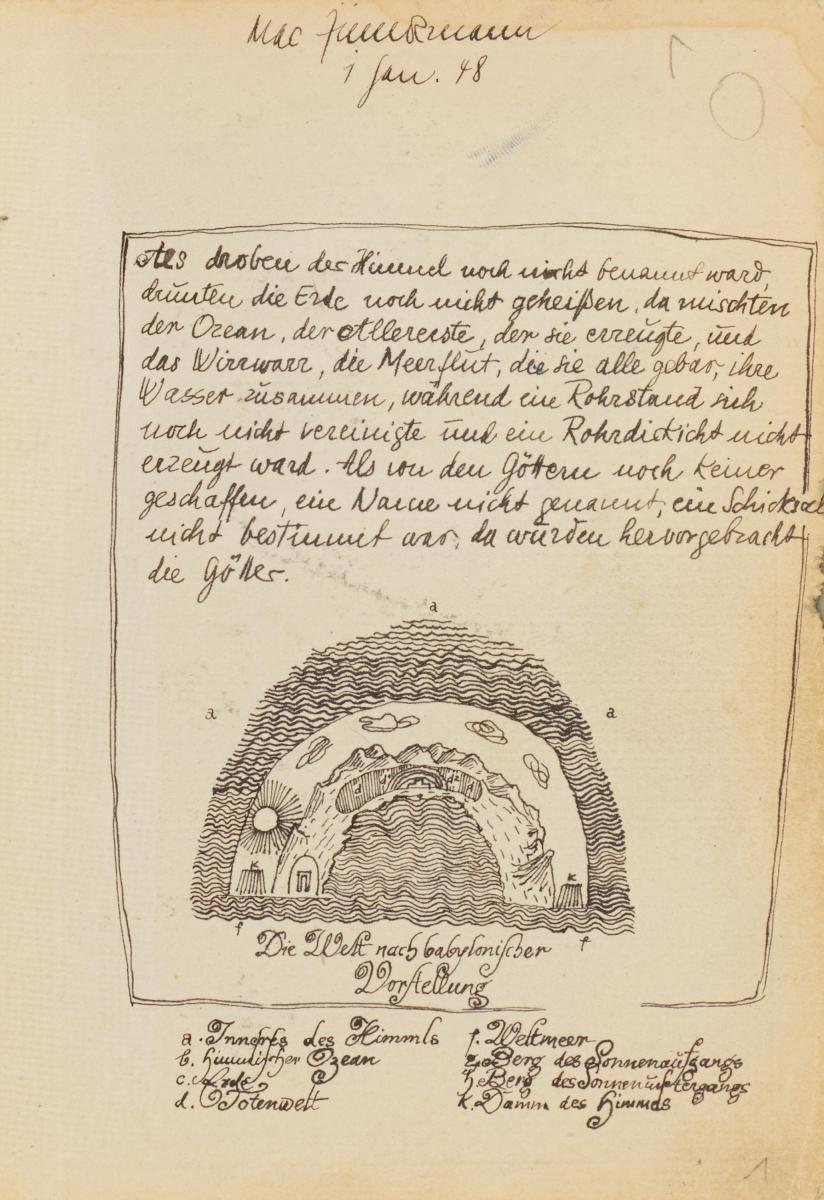 Mac Zimmermann
1 Jan. 48
Als droben der Himmel noch nicht benannt ward,
drunten die Erde noch nicht geheißen, da mischten
der Ozean, der Allererste, der sie erzeugte, und
das Wirrwarr, die Meerflut, die sie alle gebar, ihre
Wasser zusammen, während ein Rohrstand sich
noch nicht vereinigte und ein Rohrdickicht nicht
erzeugt ward. Als von den Göttern noch keiner
geschaffen, ein Name nicht genannt, ein Schicksal
nicht bestimmt war, da wurden hervorgebracht
die Götter.
a
a a
d d¹ d² d
K K
f f
Die Welt nach babylonischer
Vorstellung
a. Inneres des Himmls
b. himmlischer Ozean
c. Erde
d. Totenwelt
f. Weltmeer
g. Berg des Sonnenaufgangs
h. Berg des Sonnenuntergangs
k. Damm des Himmels